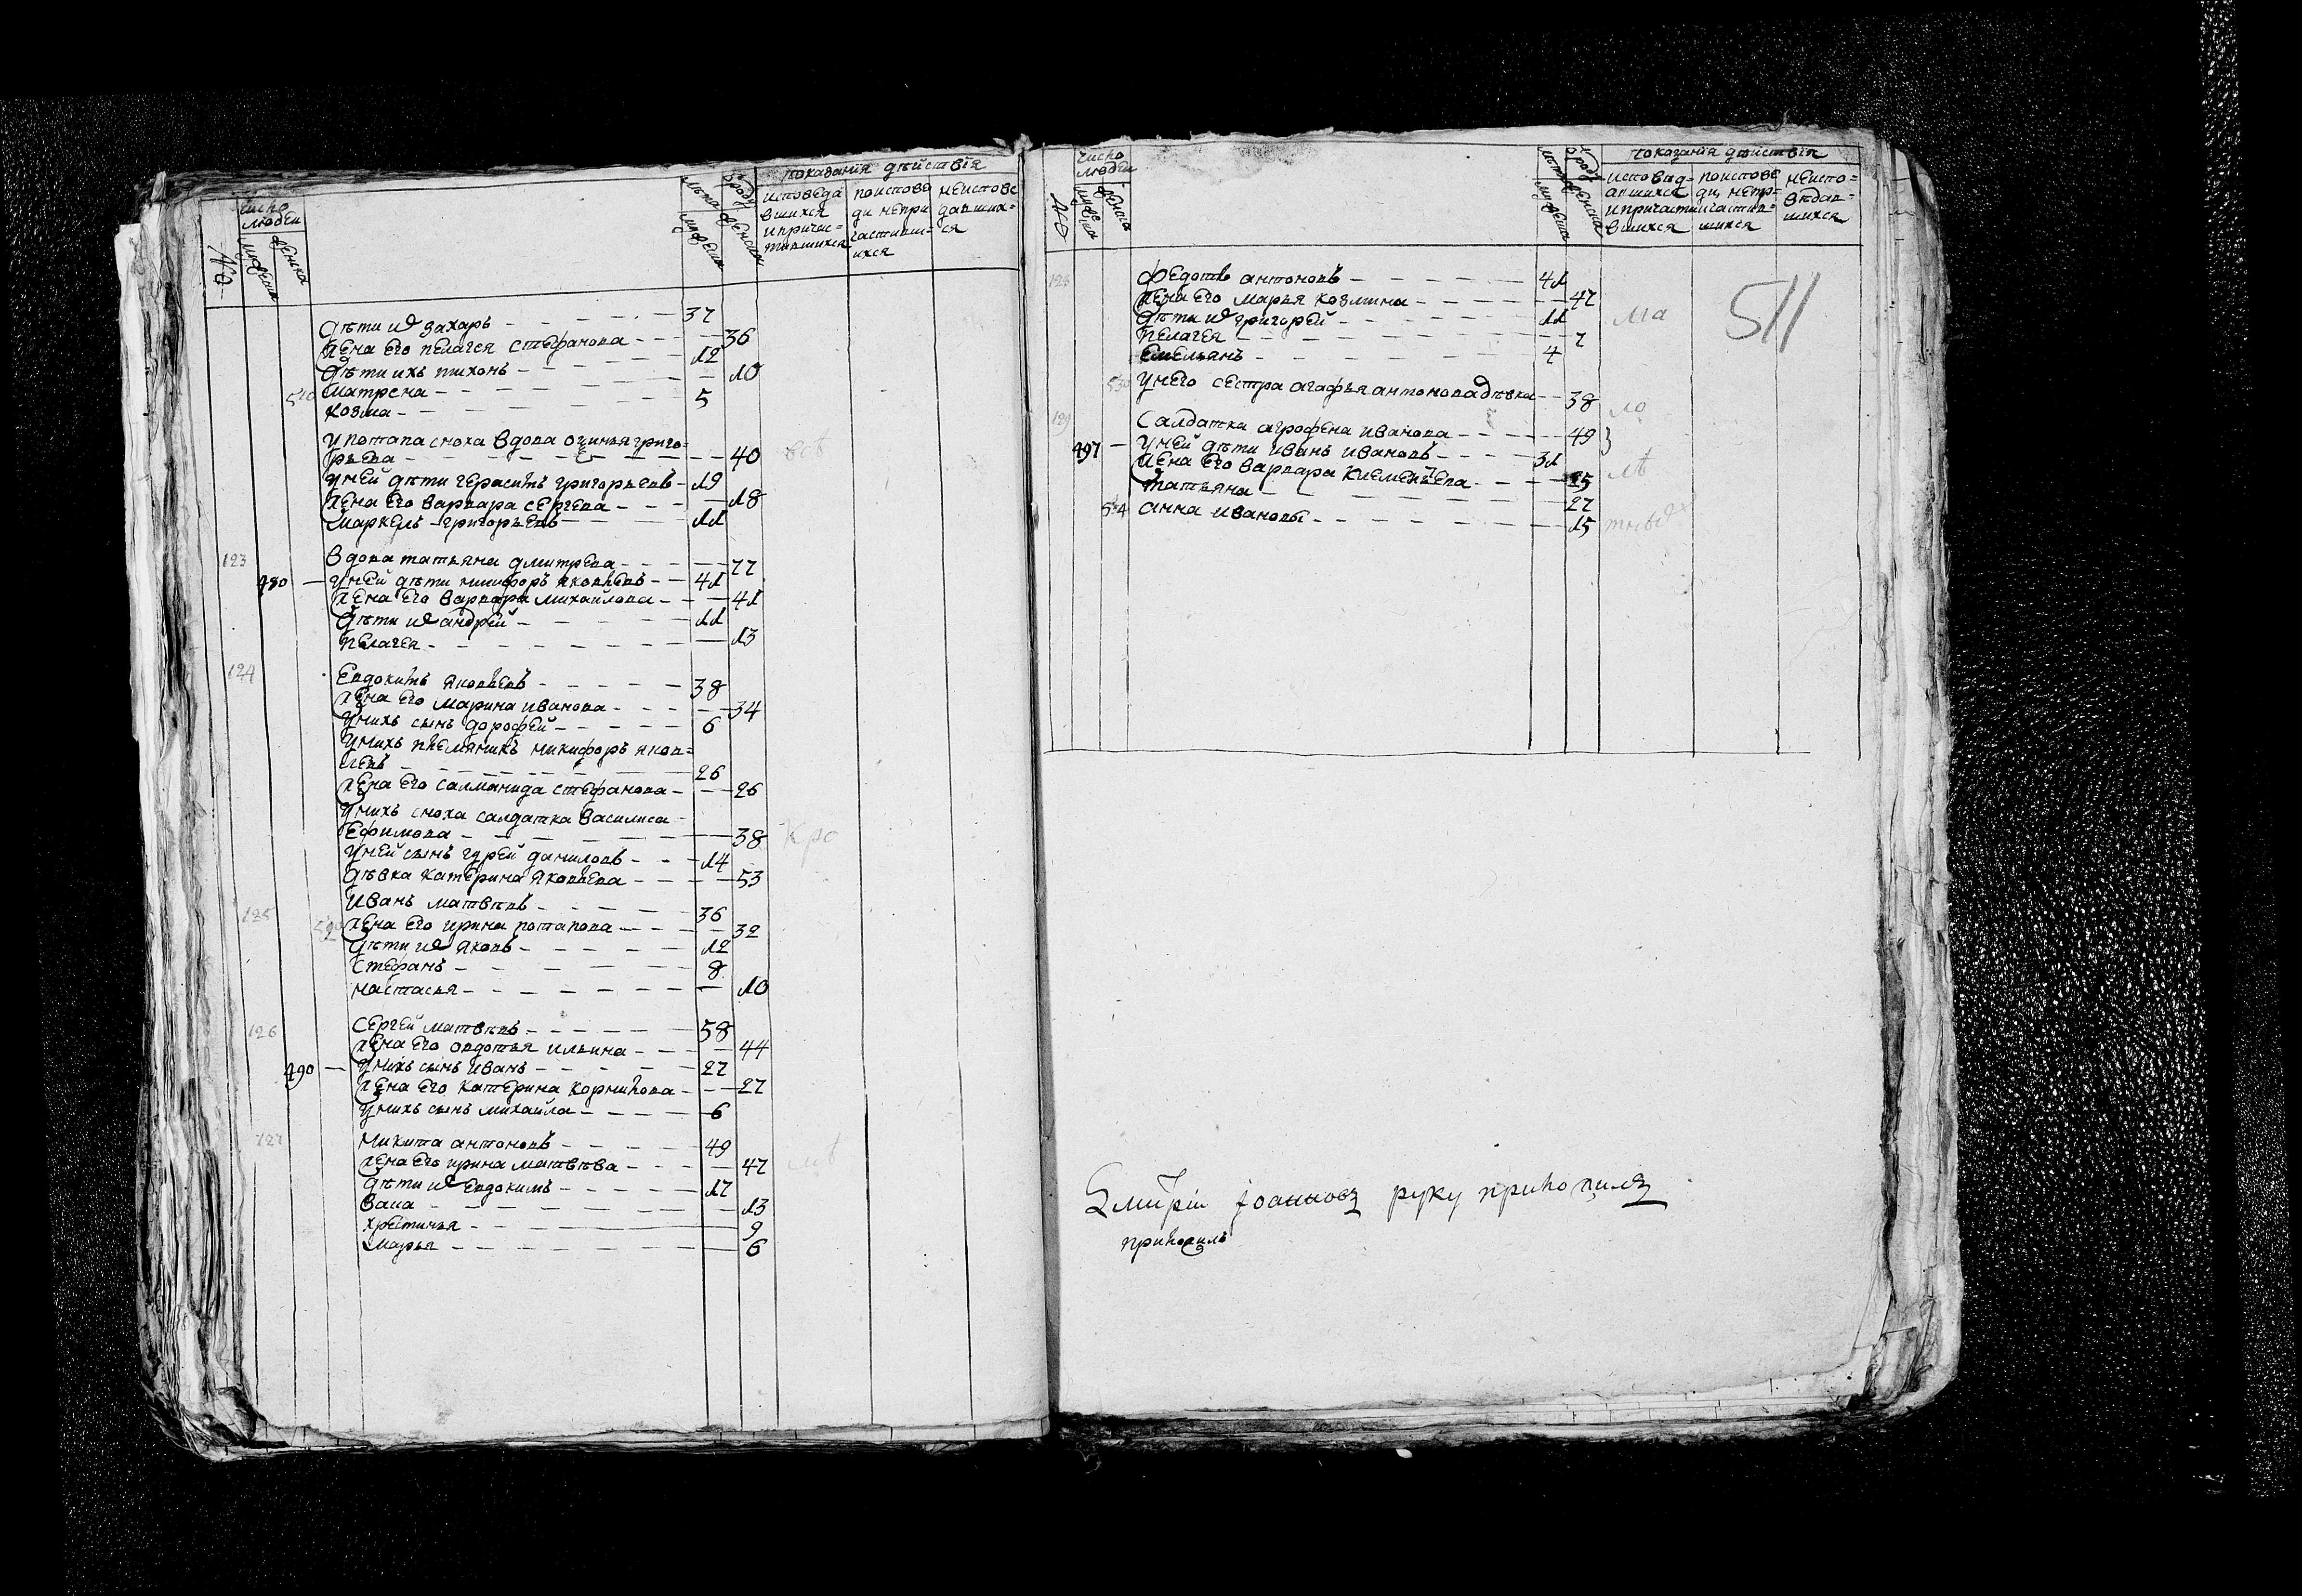 число людей
№
мужеска
женска
лѣта
ѿ роду
мужеска
женска
показанїя дѣйствїя
исповеда вшихся и причас= тившихся
поисповеди непри частивш= ихся
неисповедавших= ся
дѣти иⷯ захаръ 37
жена его пелагея стефанова 36
дѣти ихъ тихонъ 12
матрена 10
510
козма 5
у потапа сноха вдова огинья григо=
рьева 40
у ней дѣти герасимъ григорьевъ 19
жена его варвара сергева 18
маркелъ григорьевъ 11
123
вдова татьяна дмитрева 77
480 — у ней дѣти никифоръ яковлевъ 41
жена его варвара михайлова 41
дѣти иⷯ андрей 11
пелагея 13
124
Евдокимъ яковлевъ 38
жена его марина иванова 34
у нихъ сынъ дорофей 6
у нихъ племяникъ никифоръ яков=
левъ 26
жена его салманида стефанова 26
у нихъ сноха салдатка василиса
Ефимова 38
кро
у ней сынъ гурей даниловъ 14
дѣвка катерина яковлева 53
125
иванъ матвѣвъ 36
520
жена его ирина потапова 32
дѣти иⷯ яковъ 12
стефанъ 8
настасья 10
126
сергей матвѣвъ 58
жена его овдотья ильина 44
490 — у нихъ сынъ иванъ 27
жена его катерина корнилова 27
у нихъ сынъ михаила 6
127
никита антоновъ 49
жена его ирина матвѣва 47
дѣти иⷯ Евдокимъ 17
васа 13
хрестинья 9
марья 6
число людей
№
мужеска
женска
лѣта
ѿ роду
мужеска
женска
показанїя дѣйствїя
исповед= авшихся и причасти вшихся
поисповеди, непр= ичастив= шихся
неиспо= ведав= шихся
511
федотъ антоновъ 41
жена его марья козмина 47
дѣти иⷯ григорей 11
ма
пелагея 7
емельянъ 4
530
у него сестра агафья антонова дѣвка 38
129
салдатка агрофена иванова 49
497 — у ней дѣти иванъ ивановъ 31
жена его варвара климентьева 25
татьяна 27
534
анна ивановы 15
Дмитрїи Iоанновъ руку приложилъ
приложилъ